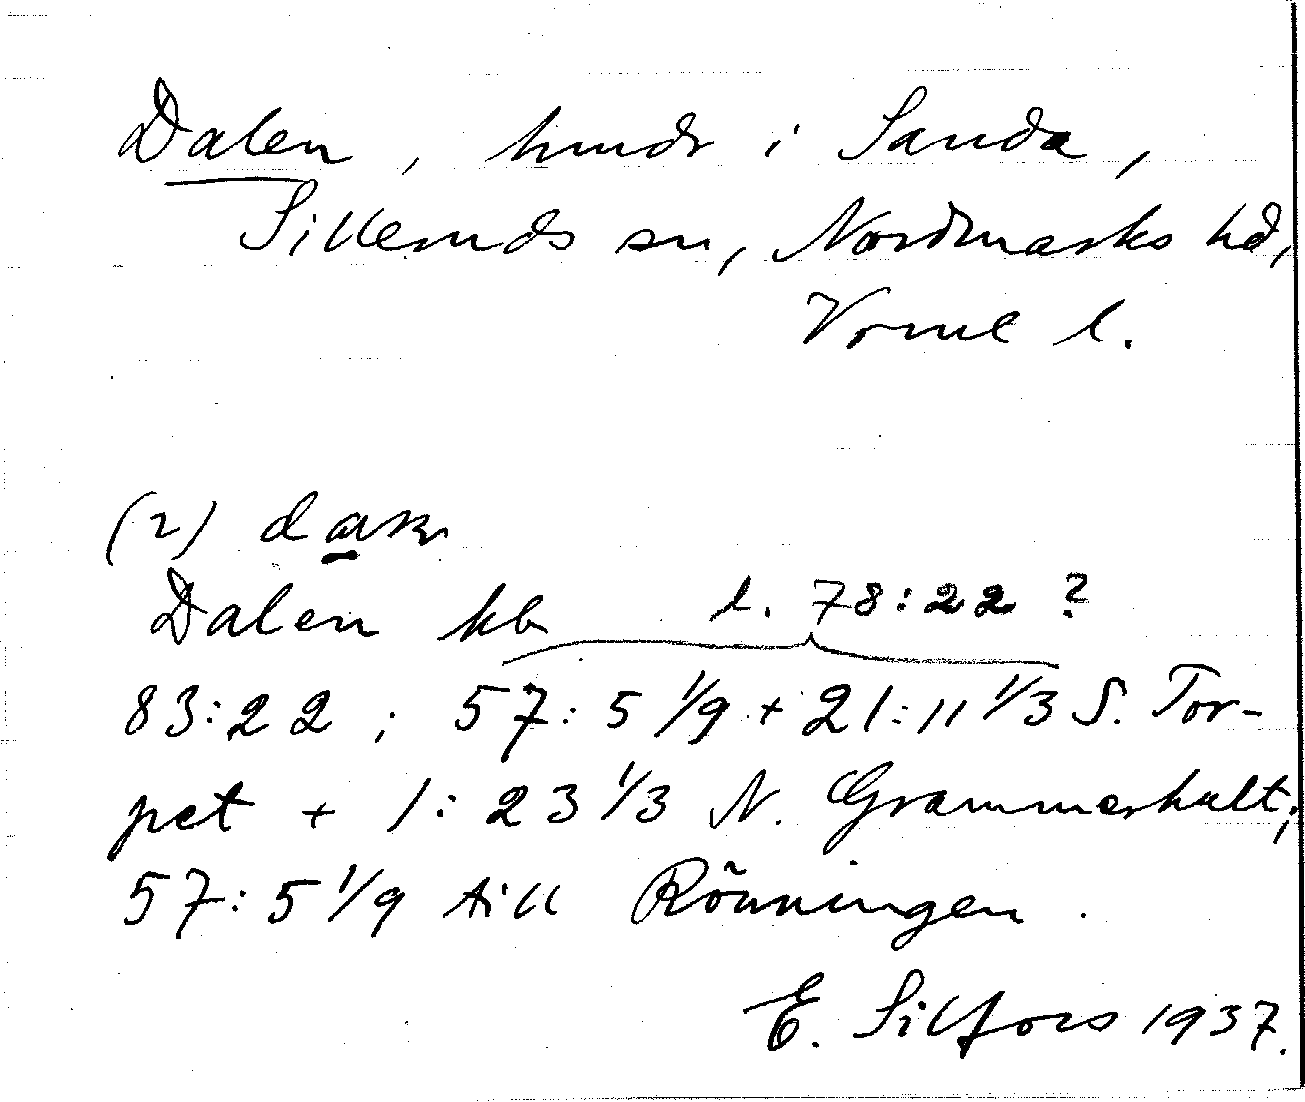 Dalen, hmdr i Sanda,
Silleruds sn, Nordmarks hd,
Vrml l.
(2) dam
Dalen kb l. 78:22 ?
83:22 ; 57:5 1/9 + 21:11 1/3 S. Tor-
pet + 1:23 1/3 N. Grammerhult;
57:5 1/9 till Rönningen.
E. Silfors 1937.